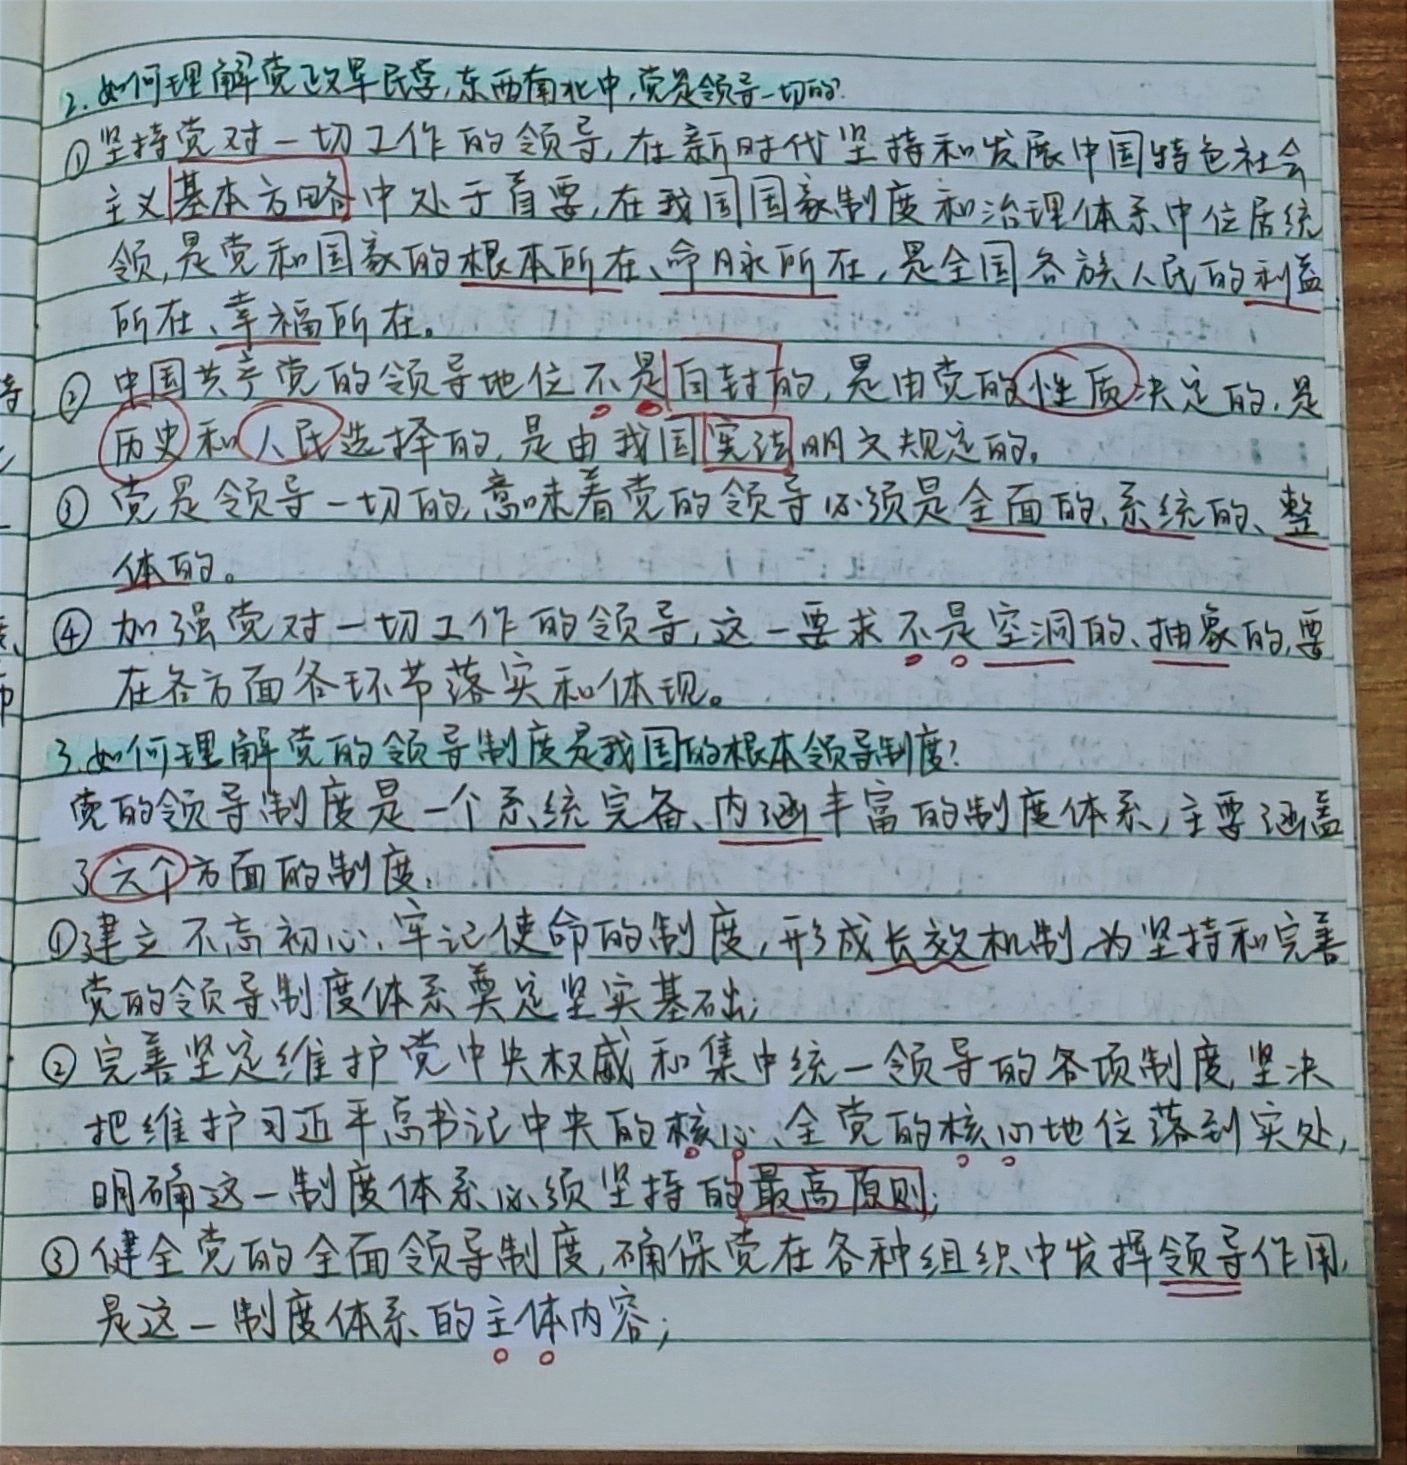 2.如何理解党政军民学,东西南北中,党是领导一切的?
①坚持党对一切工作的领导,在新时代坚持和发展中国特色社会
主义基本方略中处于首要,在我国国家制度和治理体系中位居统
领,是党和国家的根本所在、命脉所在,是全国各族人民的利益
所在、幸福所在。
②中国共产党的领导地位不是自封的,是由党的性质决定的,是
历史和人民选择的,是由我国宪法明文规定的。
③党是领导一切的,意味着党的领导必须是全面的、系统的、整
体的。
④加强党对一切工作的领导,这一要求不是空洞的、抽象的,要
在各方面各环节落实和体现。
3.如何理解党的领导制度是我国的根本领导制度?
党的领导制度是一个系统完备、内涵丰富的制度体系,主要涵盖
了六个方面的制度:
①建立不忘初心、牢记使命的制度,形成长效机制,为坚持和完善
党的领导制度体系奠定坚实基础;
②完善坚定维护党中央权威和集中统一领导的各项制度,坚决
把维护习近平总书记中央的核心、全党的核心地位落到实处,
明确这一制度体系必须坚持的最高原则;
③健全党的全面领导制度,确保党在各种组织中发挥领导作用,
是这一制度体系的主体内容;